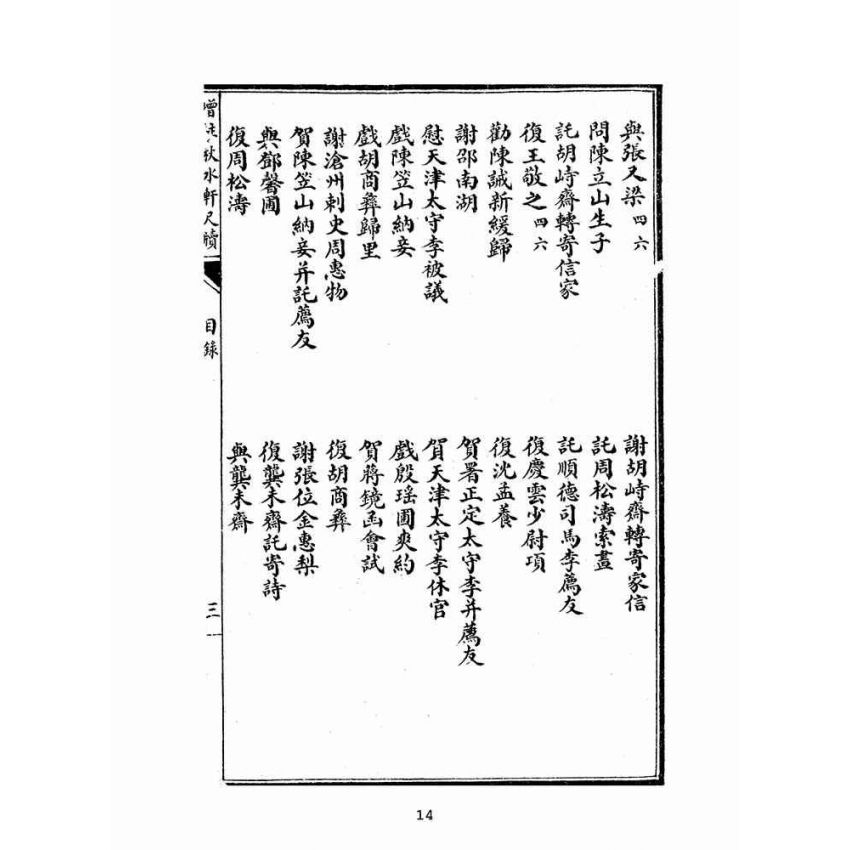 與張又梁 四六
問陳立山生子
託胡峙齋轉寄信家
復王敬之 四六
勸陳誠新緩歸
謝邵南湖
慰天津太守李被議
戲陳笠山納妾
戲胡商彝歸里
謝滄州刺史周惠物
賀陳笠山納妾并託薦友
與鄧馨圃
復周松濤
謝胡峙齋轉寄家信
託周松濤索畫
託順德司馬李薦友
復慶雲少尉項
復沈孟養
賀署正定太守李并薦友
賀天津太守李休官
戲殷瑤圃爽約
賀蔣鏡函會試
復胡商彝
謝張位金惠梨
復龔未齋託寄詩
與龔未齋
增註秋水軒尺牘
目錄
三
14